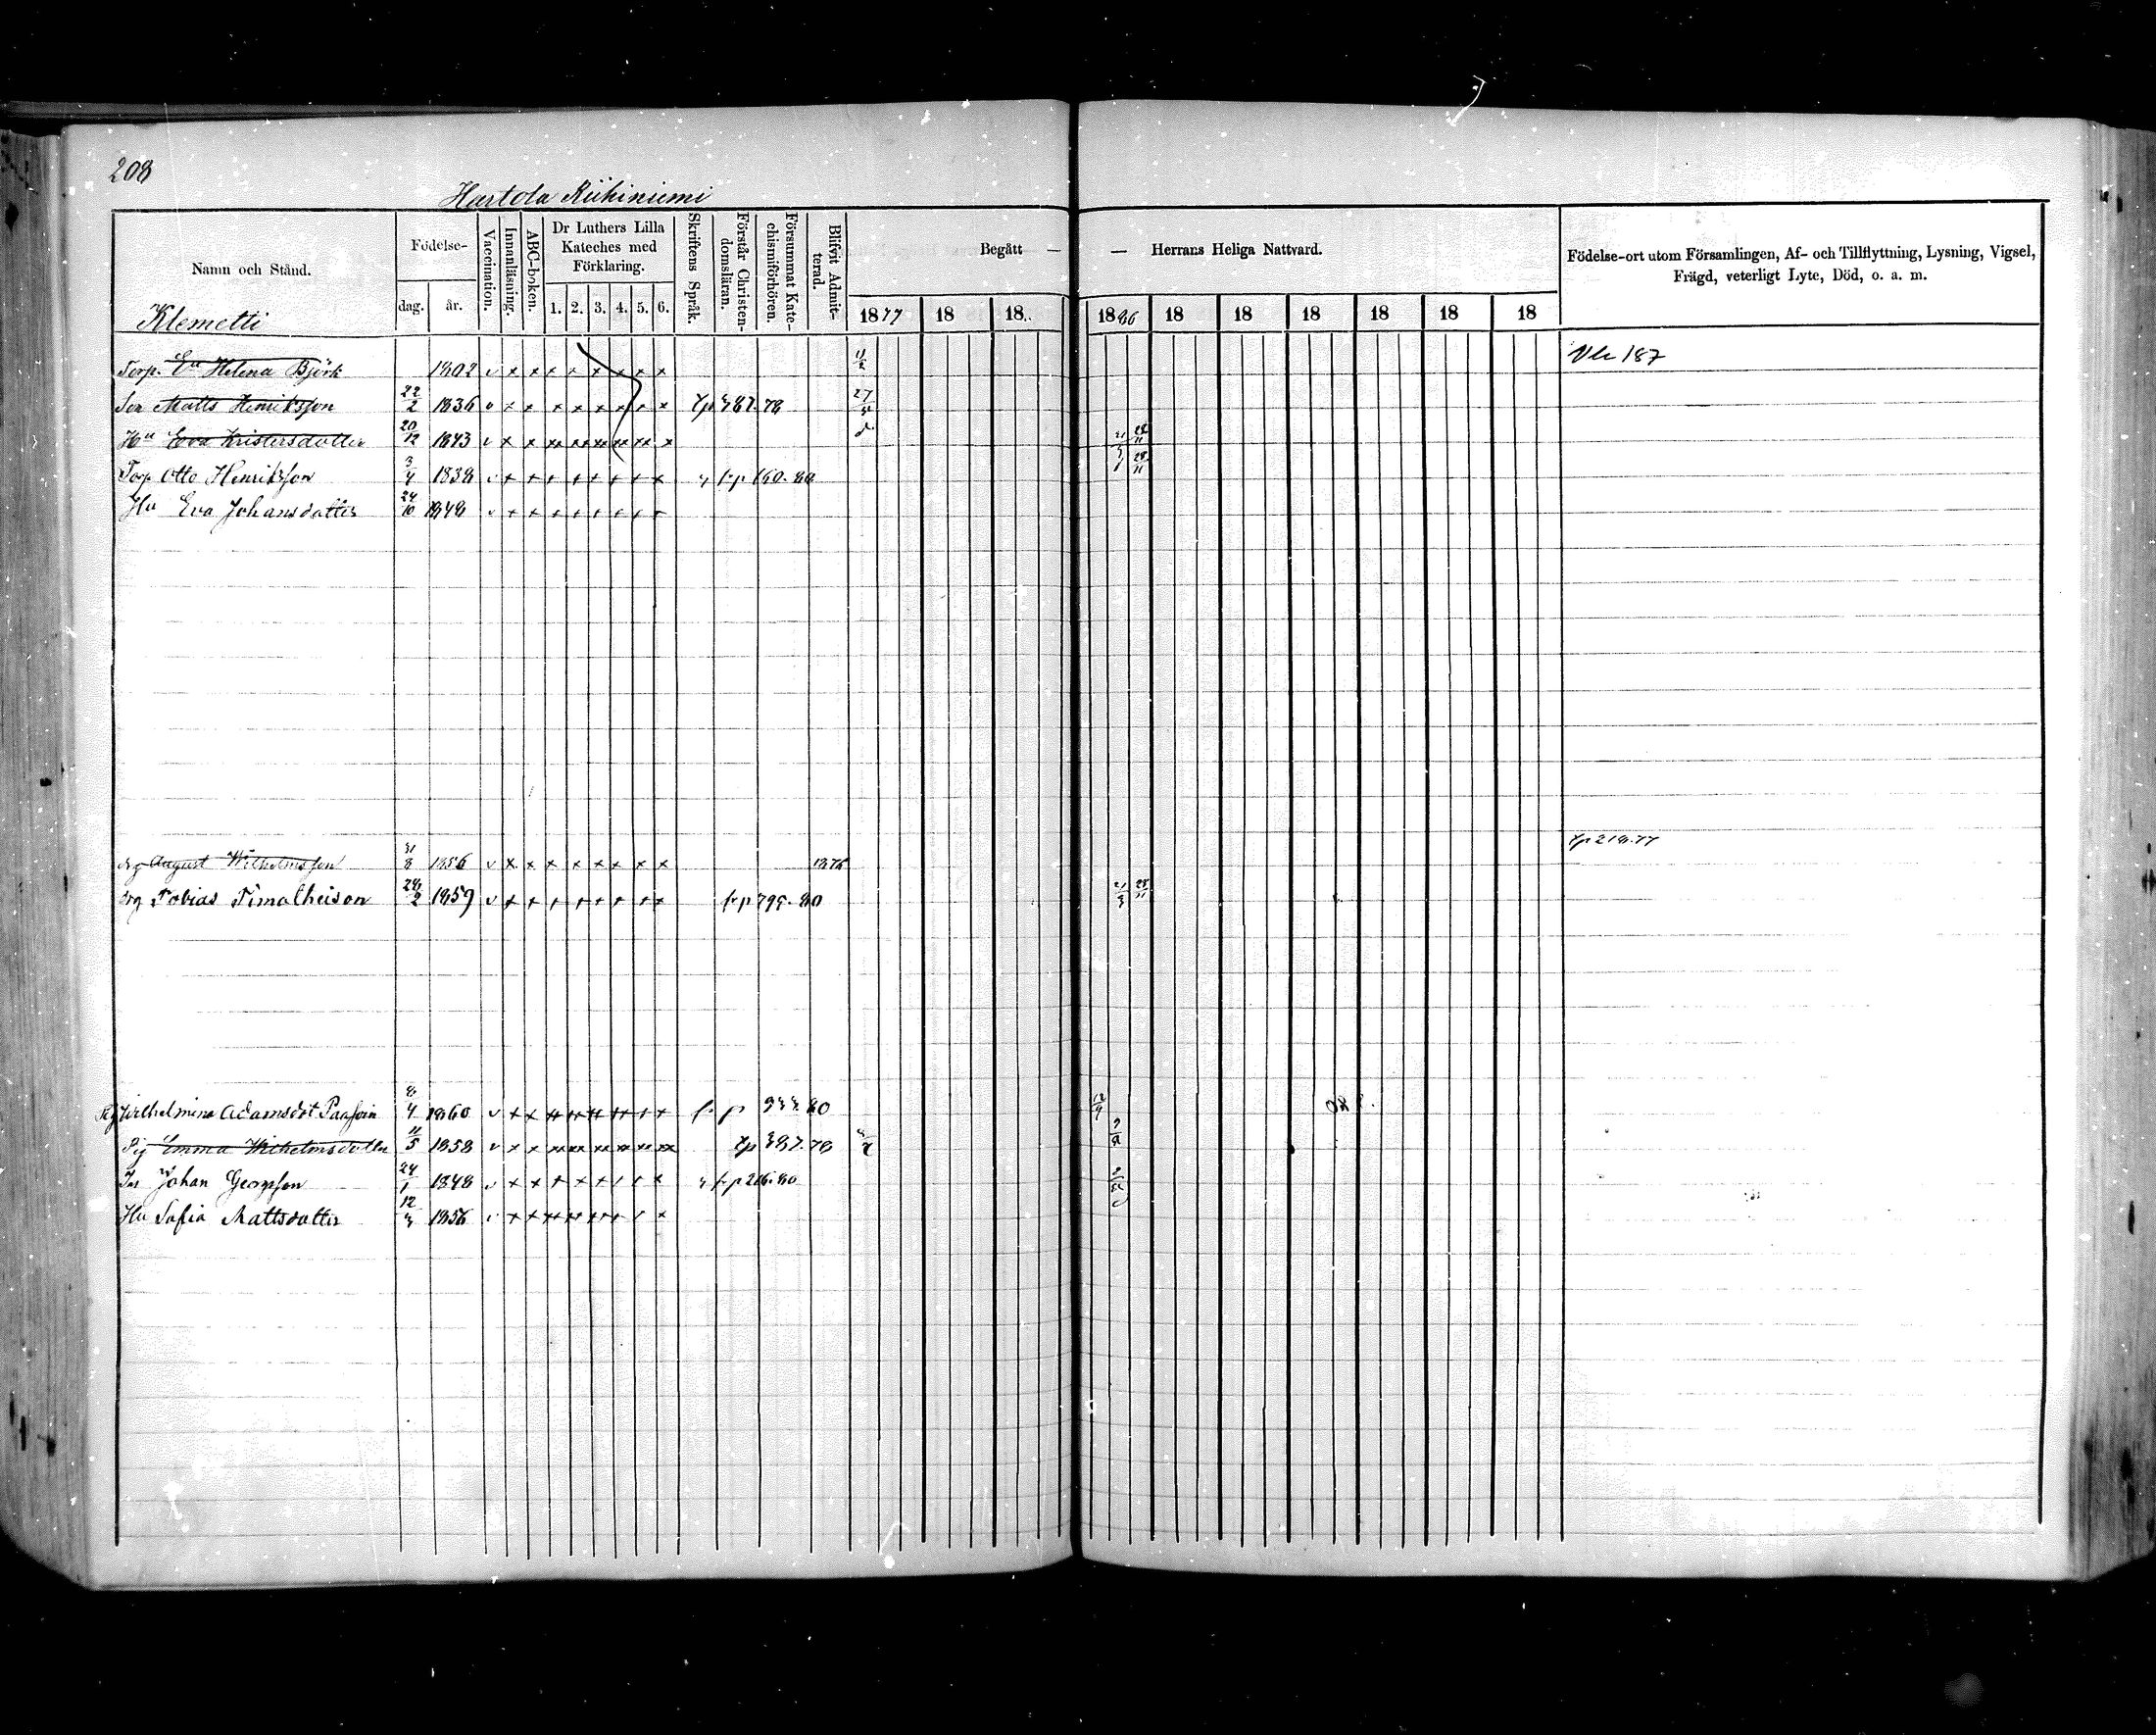 208
Hartola Riihiniemi
Namn och Stånd.
Födelse-
dag.
år.
Vaccination.
Innanläsning.
ABC-boken.
Dr Luthers Lilla Kateches med Förklaring.
1. 2. 3. 4. 5. 6.
Skriftens Språk.
Förstår Christendomsläran.
Försummat Katechismiförhören.
Blifvit Admitterad.
Begått — — Herrans Heliga Nattvard.
1877 18 18 1886 18 18 18 18 18 18
Födelse-ort utom Församlingen, Af- och Tillflyttning, Lysning, Vigsel,
Frägd, veterligt Lyte, Död, o. a. m.
Klemetti
Torp. Ea Helena Björk 1802 v x x x x x x x x 187
Son Matts Henriksson 22/2 1836 v x x x x x x x x 387.78 27
Hu Eva Kristersdotter 20/12 1843 v x x xx xx xx xx xx x 28/11
Torp Otto Henriksson 3/4 1838 v + + + + + + + x 160.80 28/11
Hu Eva Johansdotter 24/10 1848 v + + + + + + + +
Drg August Wilhelmsson 31/8 1856 v x x x x x x x x 218.77
Drg Tobias Timotheison 28/2 1859 v + + + + + + + + 795.80 28/11
Pig Wilhelmina Adamsdot 8/4 1860 v + + 80
Pig Emma Wilhelmsdotter 11/5 1858 v x x xx xx xx xx xx xx 387.78
Johan Georgsson 24/1 1848 v x x + x + + + x 216.80
Hu Sofia Mattsdotter 12/3 1856